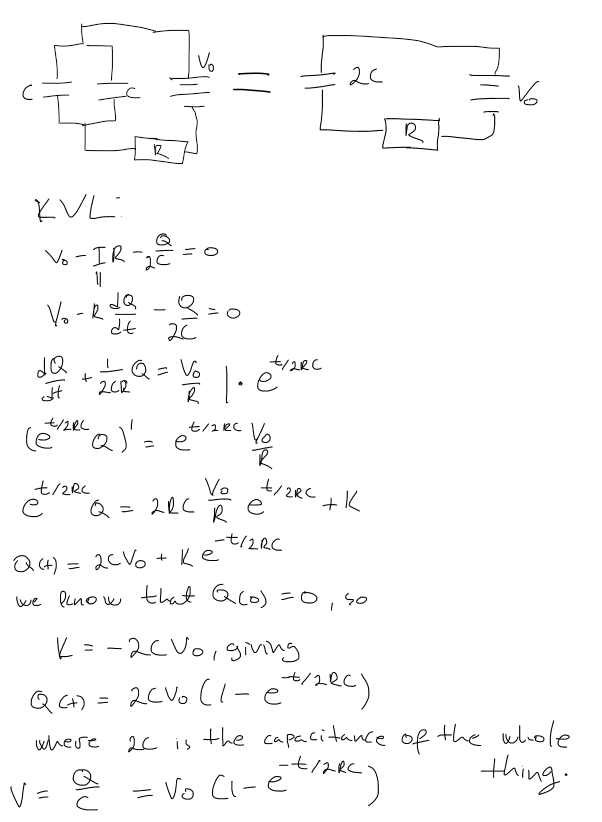 C C V₀ R = 2C V₀ R
KVL:
V₀ - IR - Q/2C = 0
V₀ - R dQ/dt - Q/2C = 0
dQ/dt + 1/2CR Q = V₀/R | · e^(t/2RC)
(e^(t/2RC) Q)' = e^(t/2RC) V₀/R
e^(t/2RC) Q = 2RC V₀/R e^(t/2RC) + K
Q(t) = 2CV₀ + K e^(-t/2RC)
we know that Q(0) = 0, so
K = -2CV₀, giving
Q(t) = 2CV₀ (1 - e^(-t/2RC))
where 2C is the capacitance of the whole
thing.
V = Q/C = V₀ (1 - e^(-t/2RC))